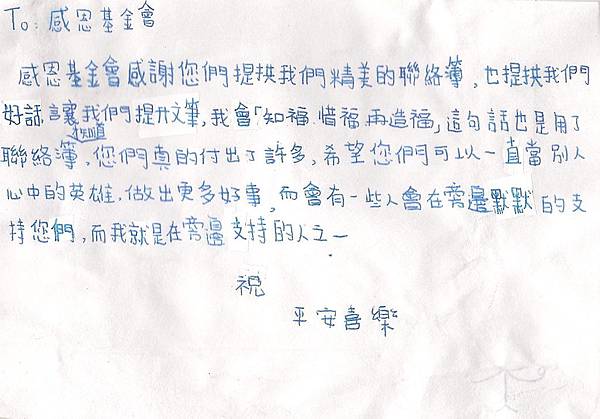 To: 感恩基金會
感恩基金會感謝您們提拱我們精美的聯絡簿，也提拱我們
好話讓我們提升文筆，我會「知福、惜福、再造福」，這句話也是用了
聯絡簿才知道，您們真的付出了許多，希望您們可以一直當別人
心中的英雄，做出更多好事，而會有一些人會在旁邊默默的支
持您們，而我就是在旁邊支持的人之一
祝
平安喜樂